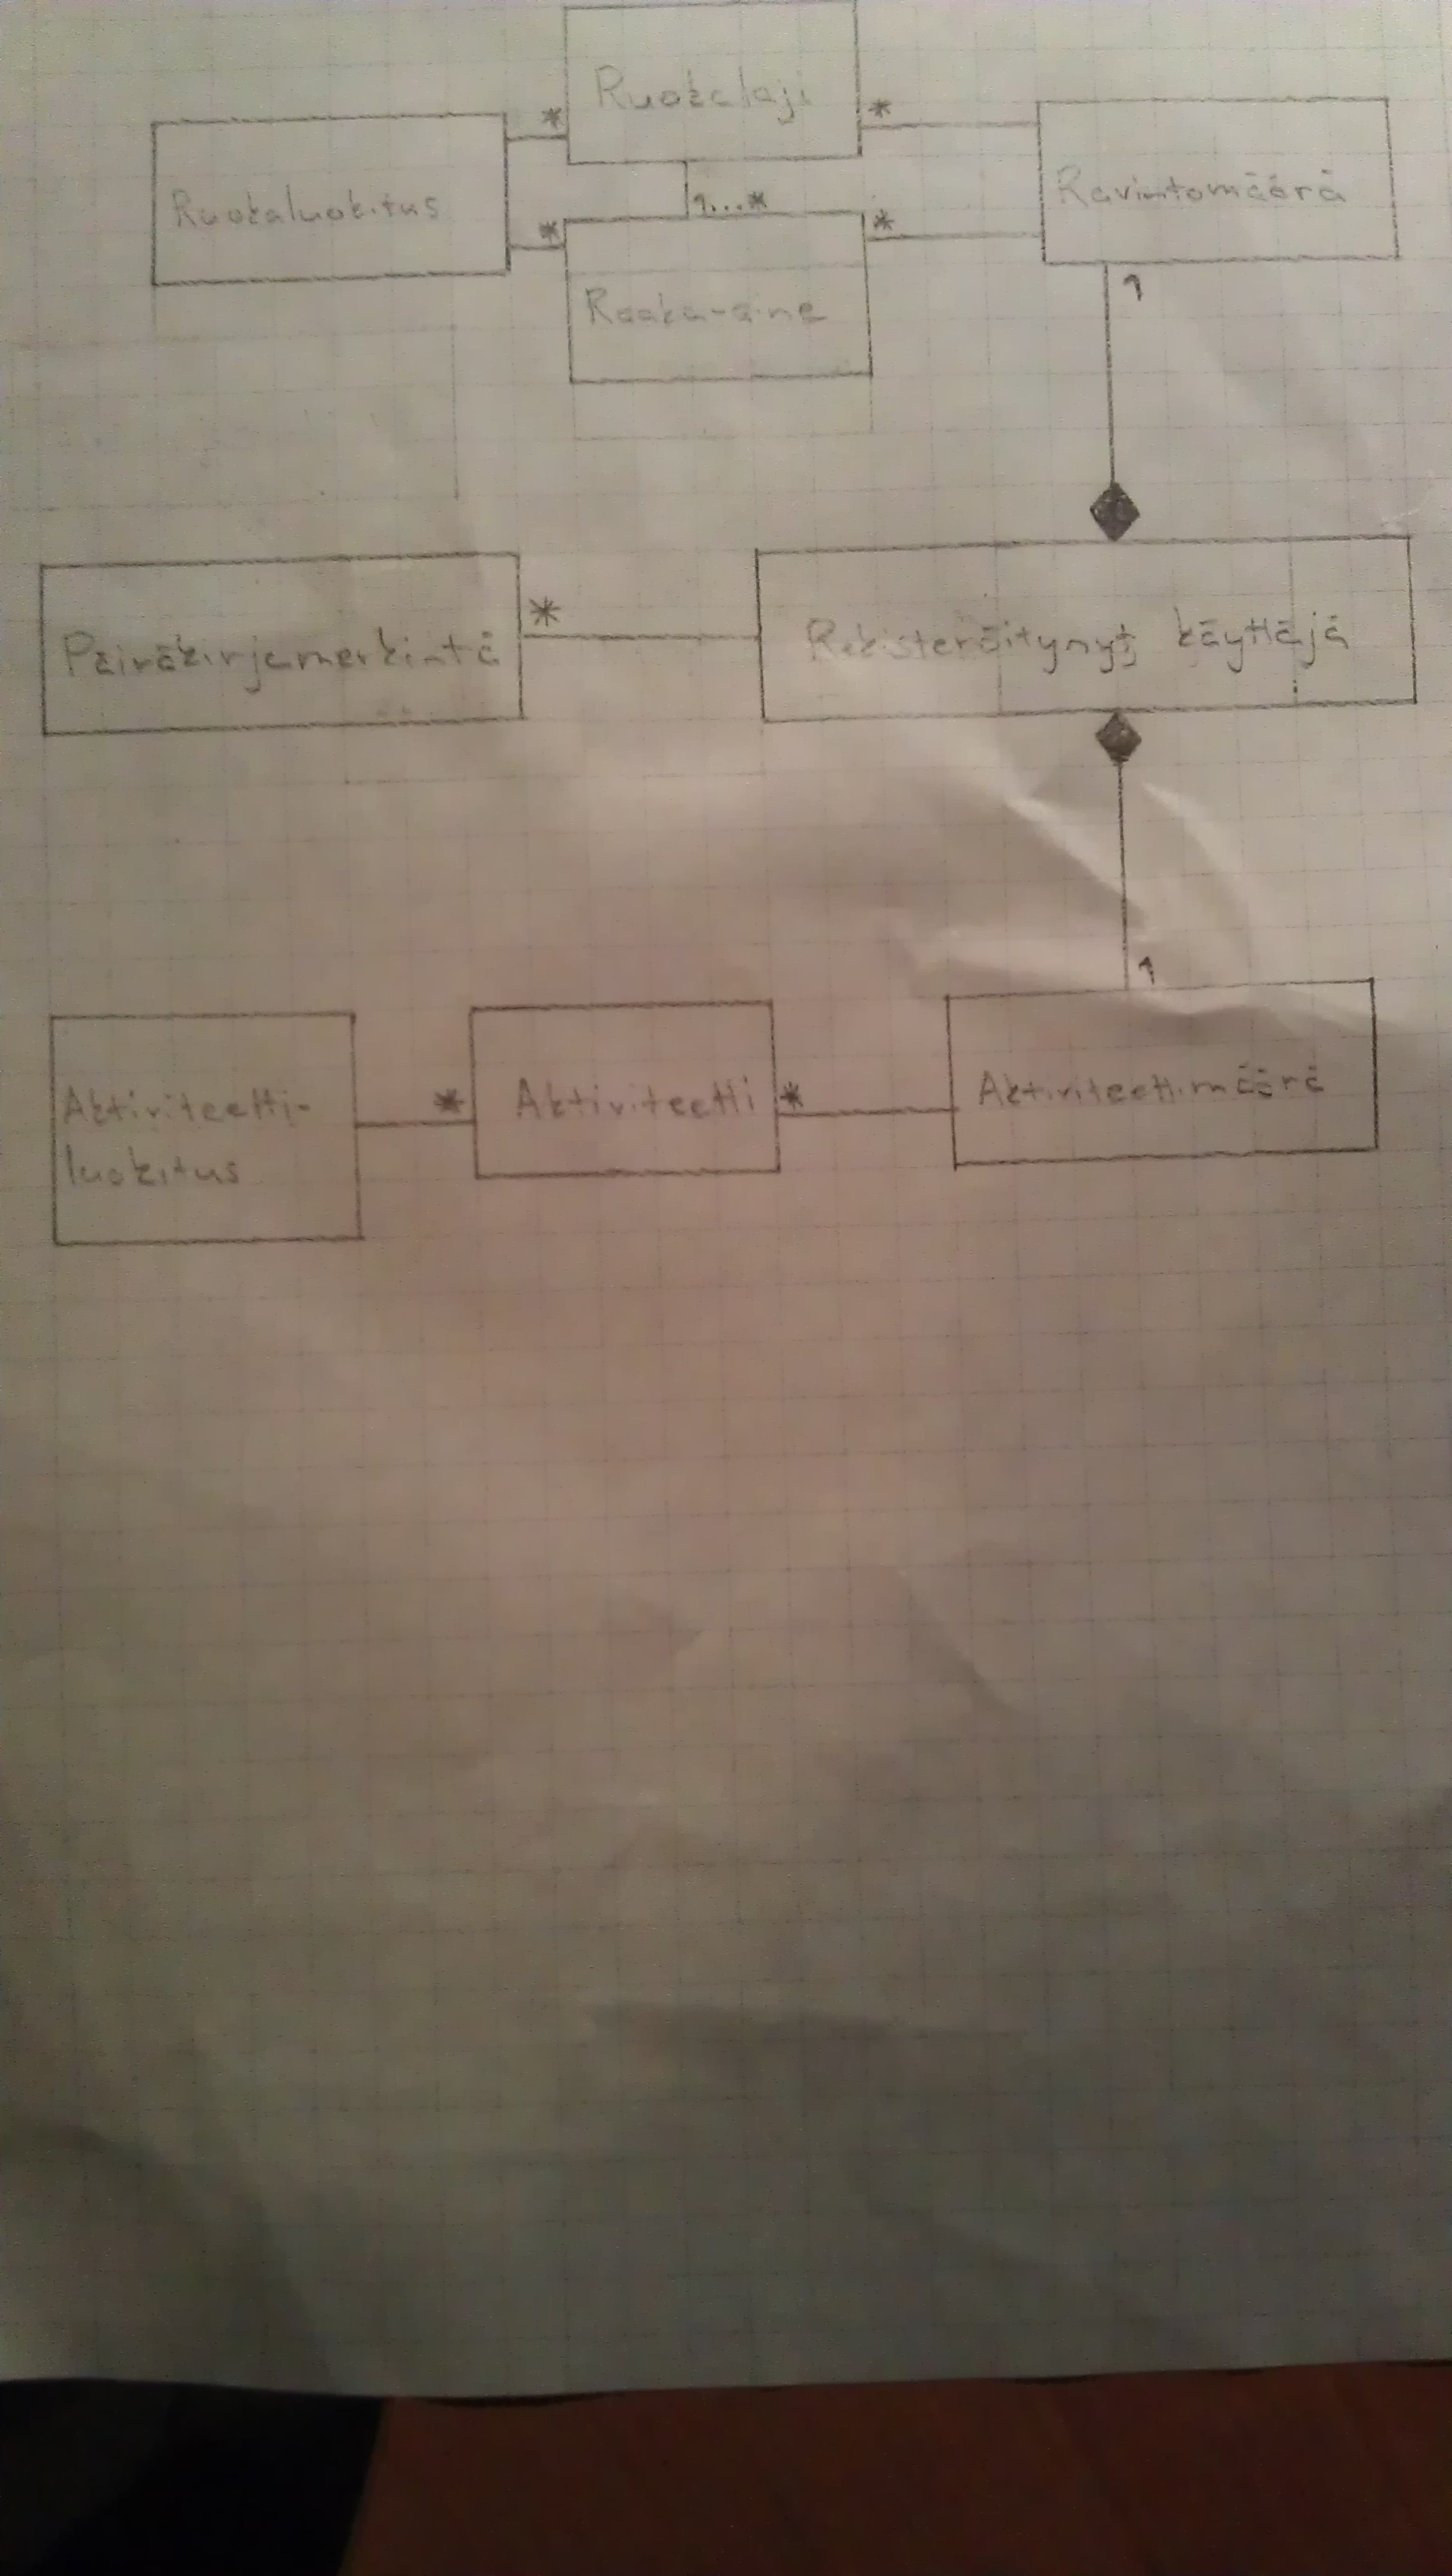 Ruokalaji
*
*
Ruokaluokitus
Ravintomäärä
1...*
*
*
Raaka-aine
1
*
Päiväkirjamerkintä
Rekisteröitynyt käyttäjä
1
Aktiviteetti-
luokitus
*
Aktiviteetti
*
Aktiviteettimäärä